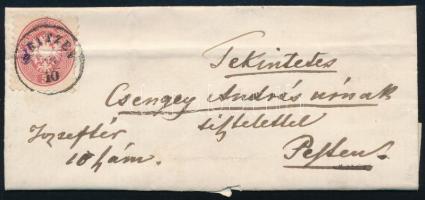 WAITZEN
10
Tekintetes
Csengey András úrnak
tisztelettel
Josseftér
10 szám.
Pesten